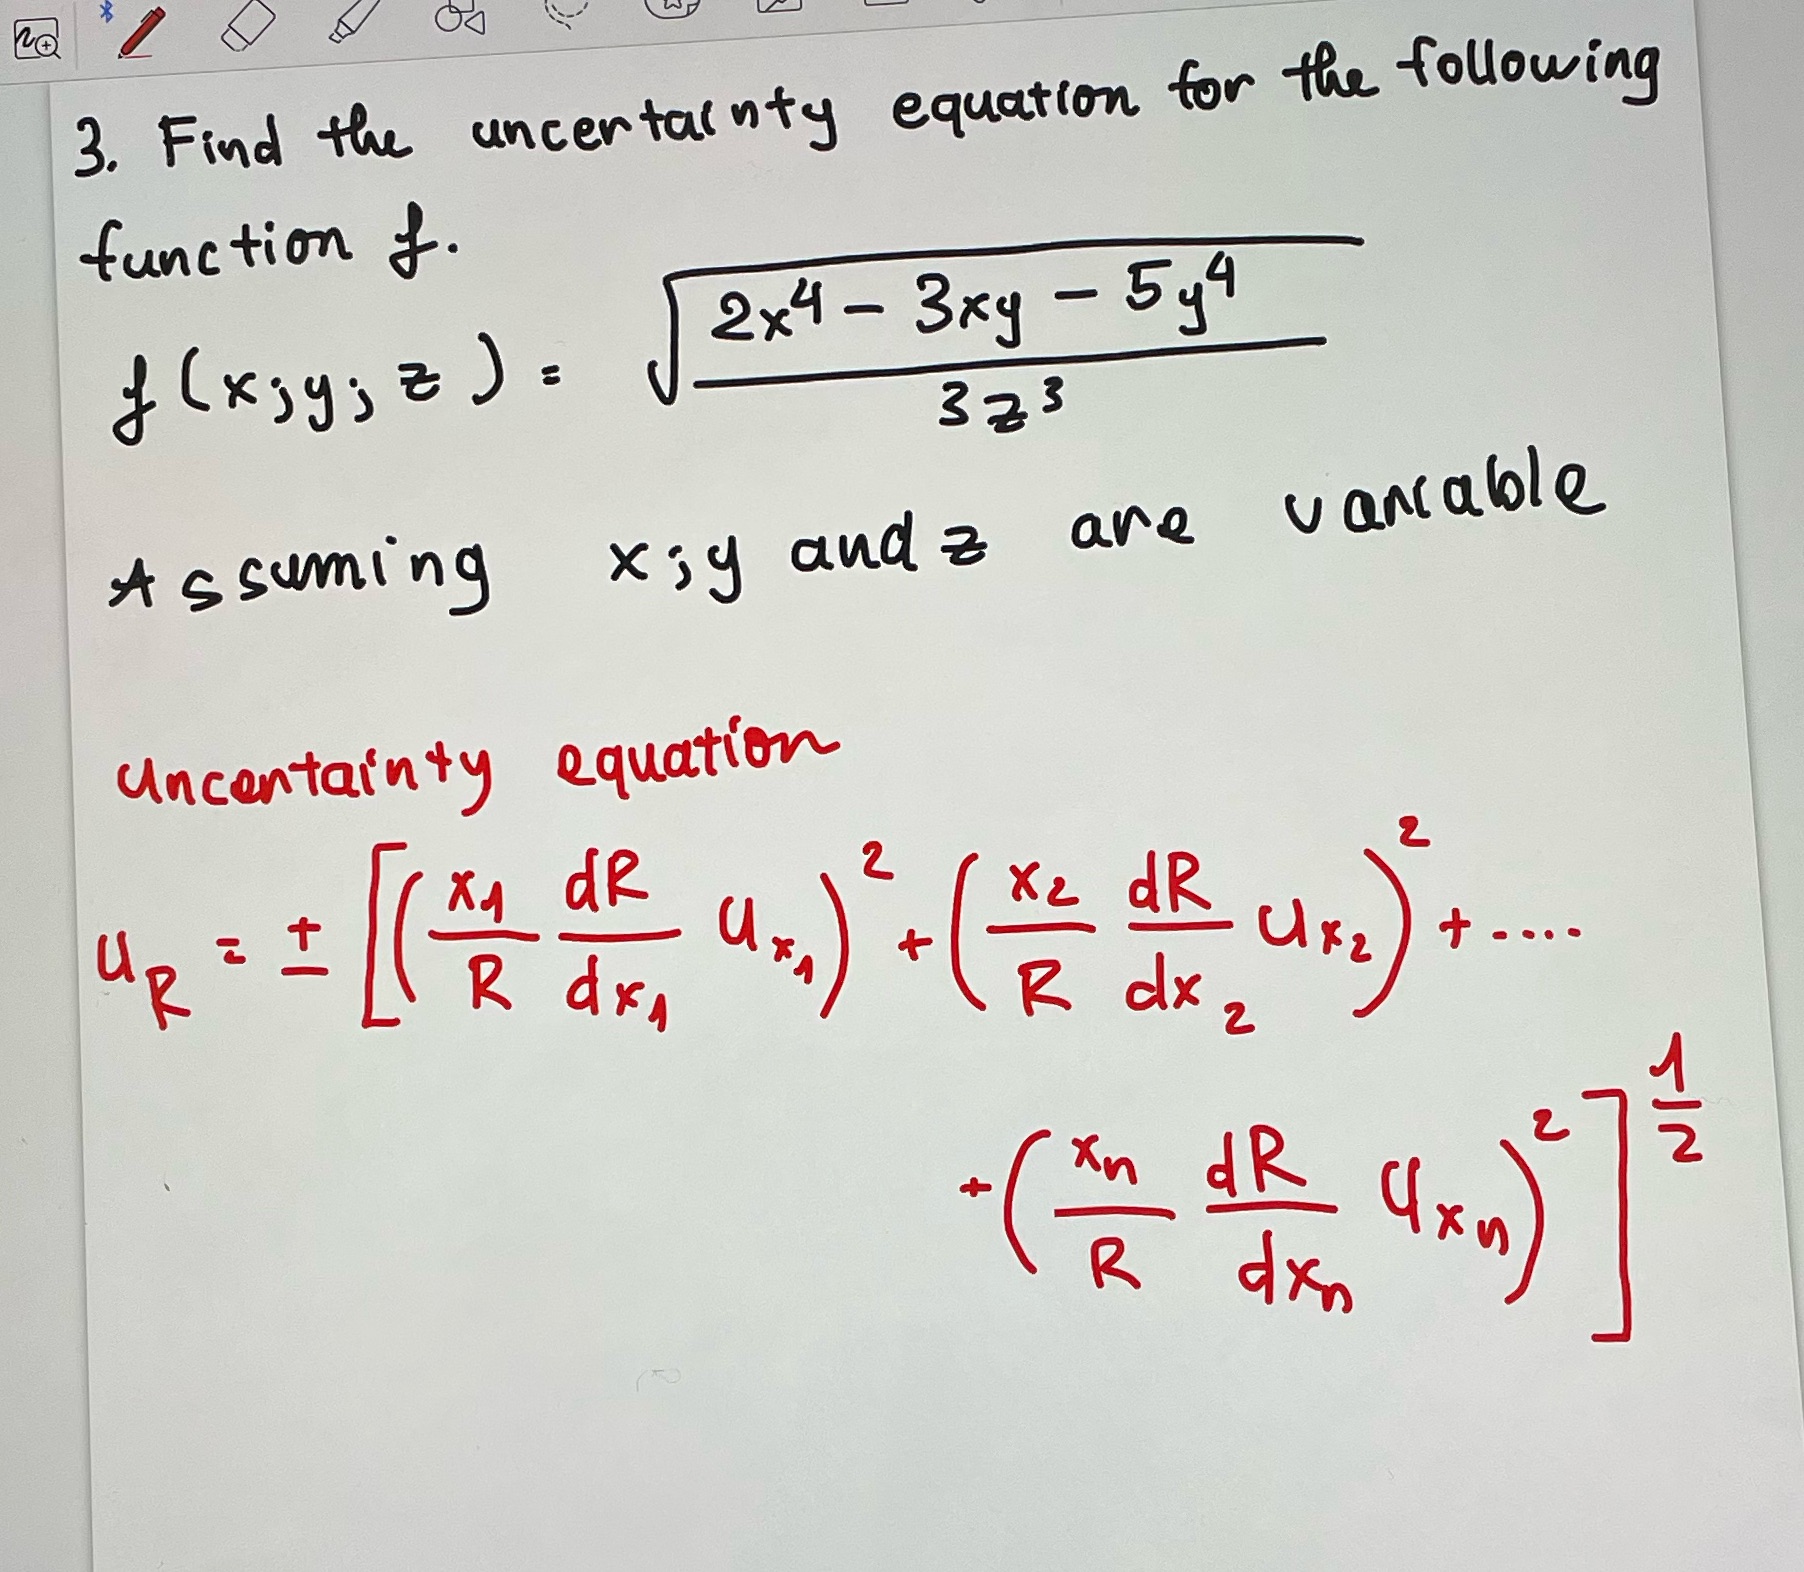 3. Find the uncertainty equation for the following
function f.
f(x;y;z) = √((2x⁴ - 3xy - 5y⁴)/(3z³))
Assuming x;y and z are variable
Uncertainty equation
u_R = ± [(x₁/R dR/dx₁ u_x₁)² + (x₂/R dR/dx₂ u_x₂)² + ....
+ (xₙ/R dR/dxₙ u_xₙ)²]^(1/2)